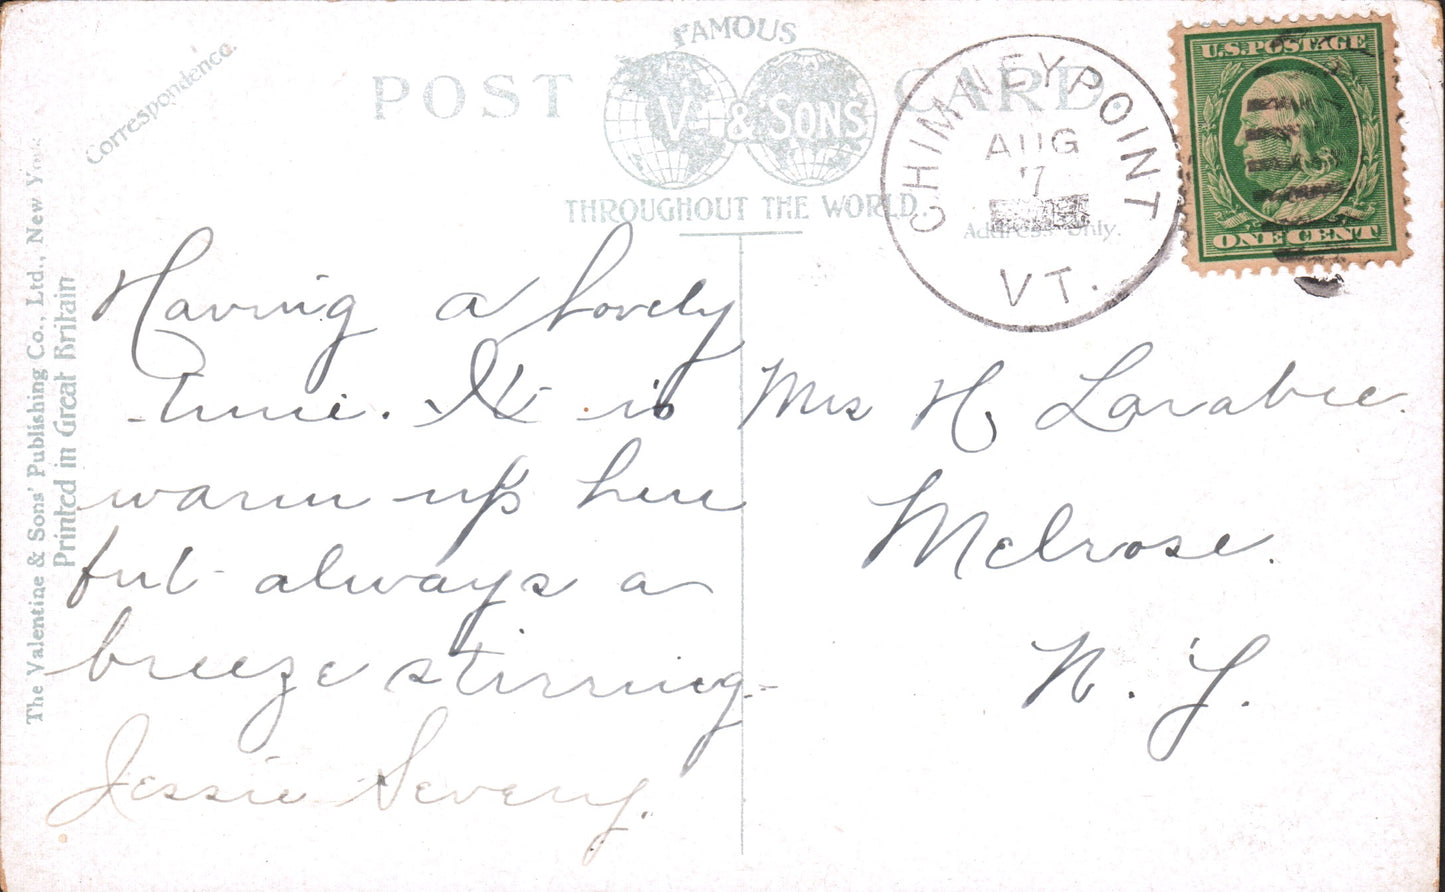 Correspondence.
POST CARD
FAMOUS
V & SONS
THROUGHOUT THE WORLD.
Address Only.
CHIMNEY POINT
AUG
7
VT.
U.S. POSTAGE
ONE CENT
The Valentine & Sons' Publishing Co., Ltd., New York
Printed in Great Britain
Having a lovely
time. It is
warm up here
but always a
breeze stirring-
Jessie Severy.
Mrs H. Larabee.
Melrose.
N. Y.